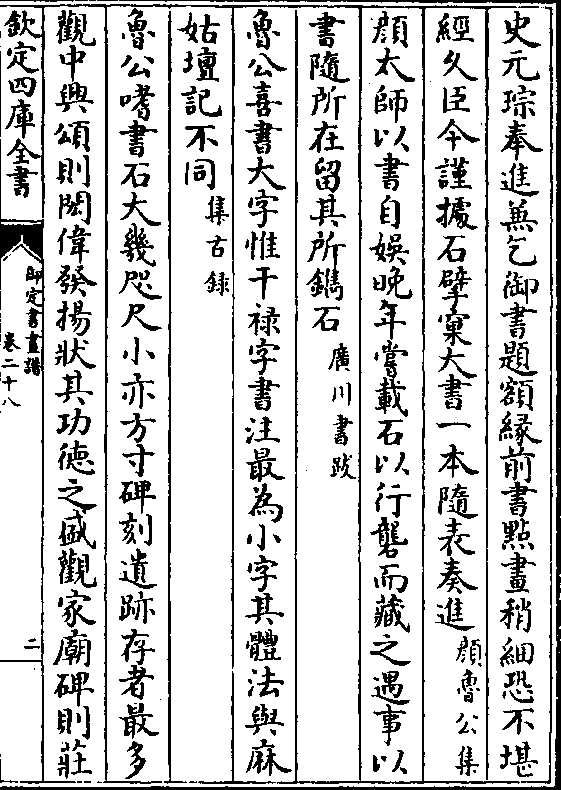 史元琮奉進兼乞御書題額縁前書點畫稍細恐不堪
經久臣今謹據石擘窠大書一本隨表奏進顔魯公集
顔太師以書自娯晩年嘗載石以行礱而藏之遇事以
書隨所在留其所鐫石廣川書跋
魯公喜書大字惟干禄字書注最為小字其體法與麻
姑壇記不同集古録
魯公嗜書石大幾咫尺小亦方寸碑刻遺跡存者最多
觀中興頌則閎偉發揚狀其功徳之盛觀家廟碑則莊
欽定四庫全書
御定書畫譜
卷二十八
二